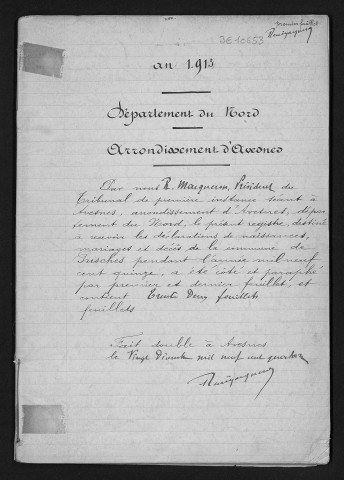 premier feuillet
3E 10653
an 1915
Département du Nord
Arrondissement d'Avesnes
Par nous R. Maigneron, Président du
Tribunal de première instance séant à
Avesnes, arrondissement d'Avesnes, dépar-
tement du Nord, le présent registre, destiné
à recevoir les déclarations de naissances,
mariages et décès de la commune de
Presches pendant l'année mil neuf
cent quinze, a été coté et paraphé
par premier et dernier feuillet, et
contient Trente Deux feuillets
feuillets
Fait double à Avesnes
le Vingt mil neuf cent quatorze